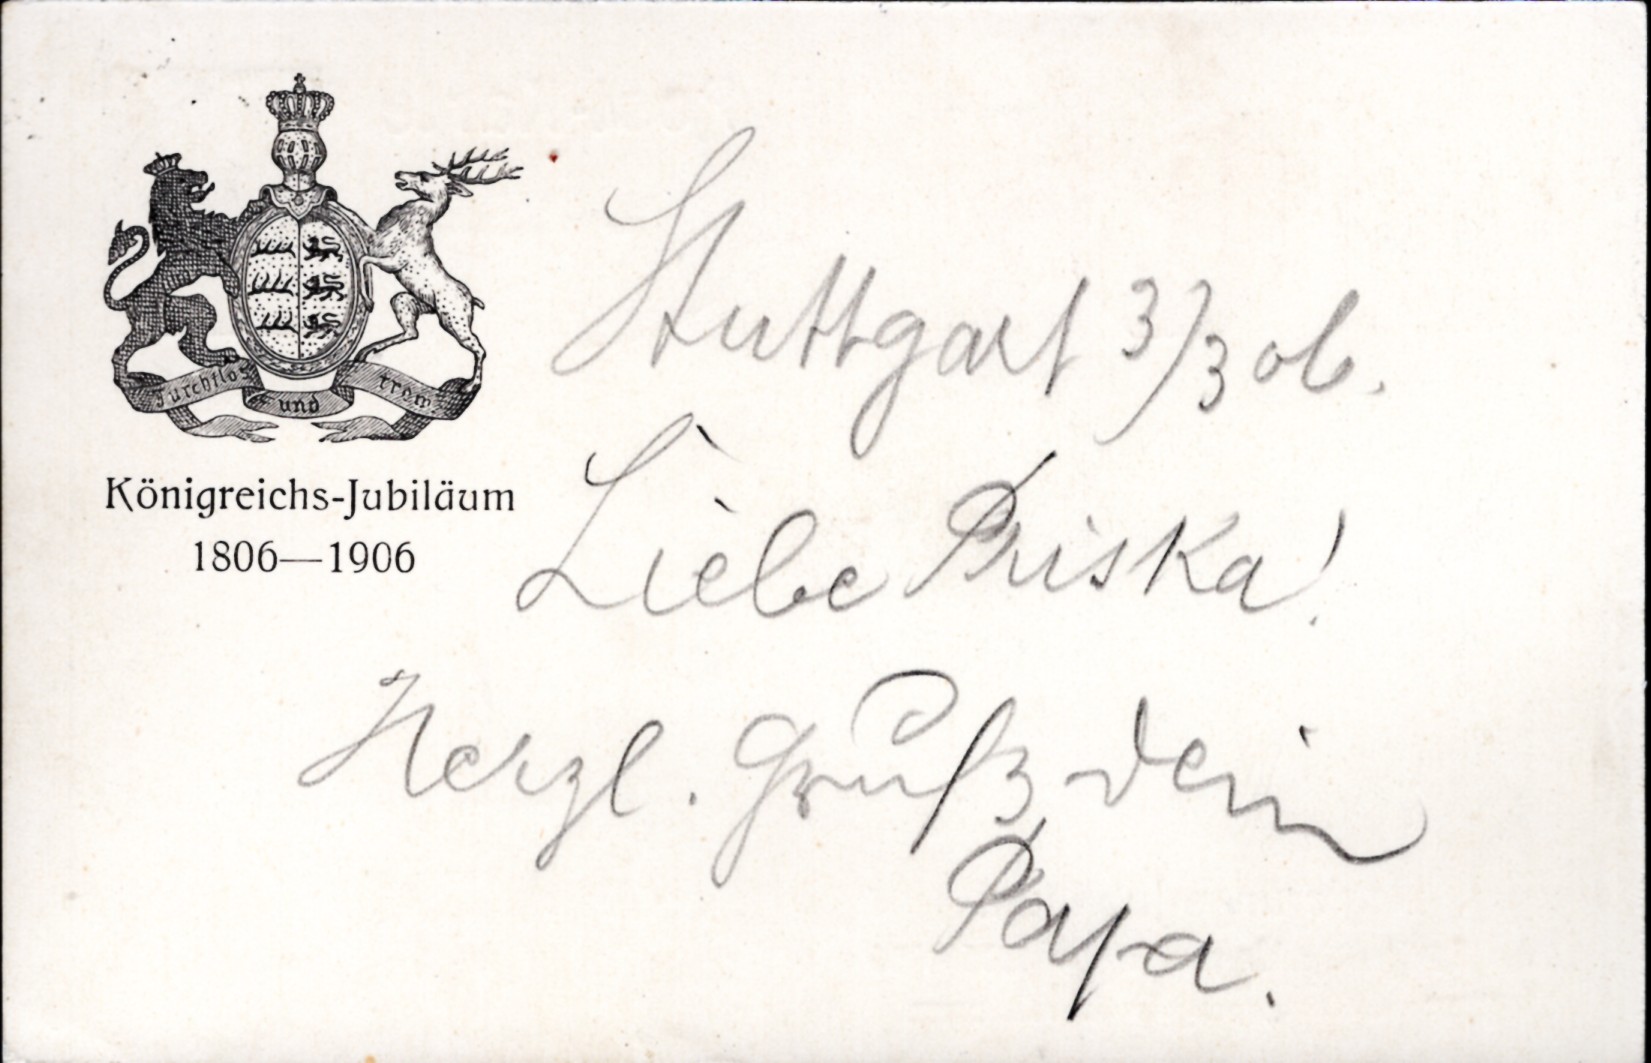 Furchtlos und trew.
Königreichs-Jubiläum
1806—1906
Stuttgart 3/3 06.
Liebe Priska!
Herzl. Gruß dein
Papa.